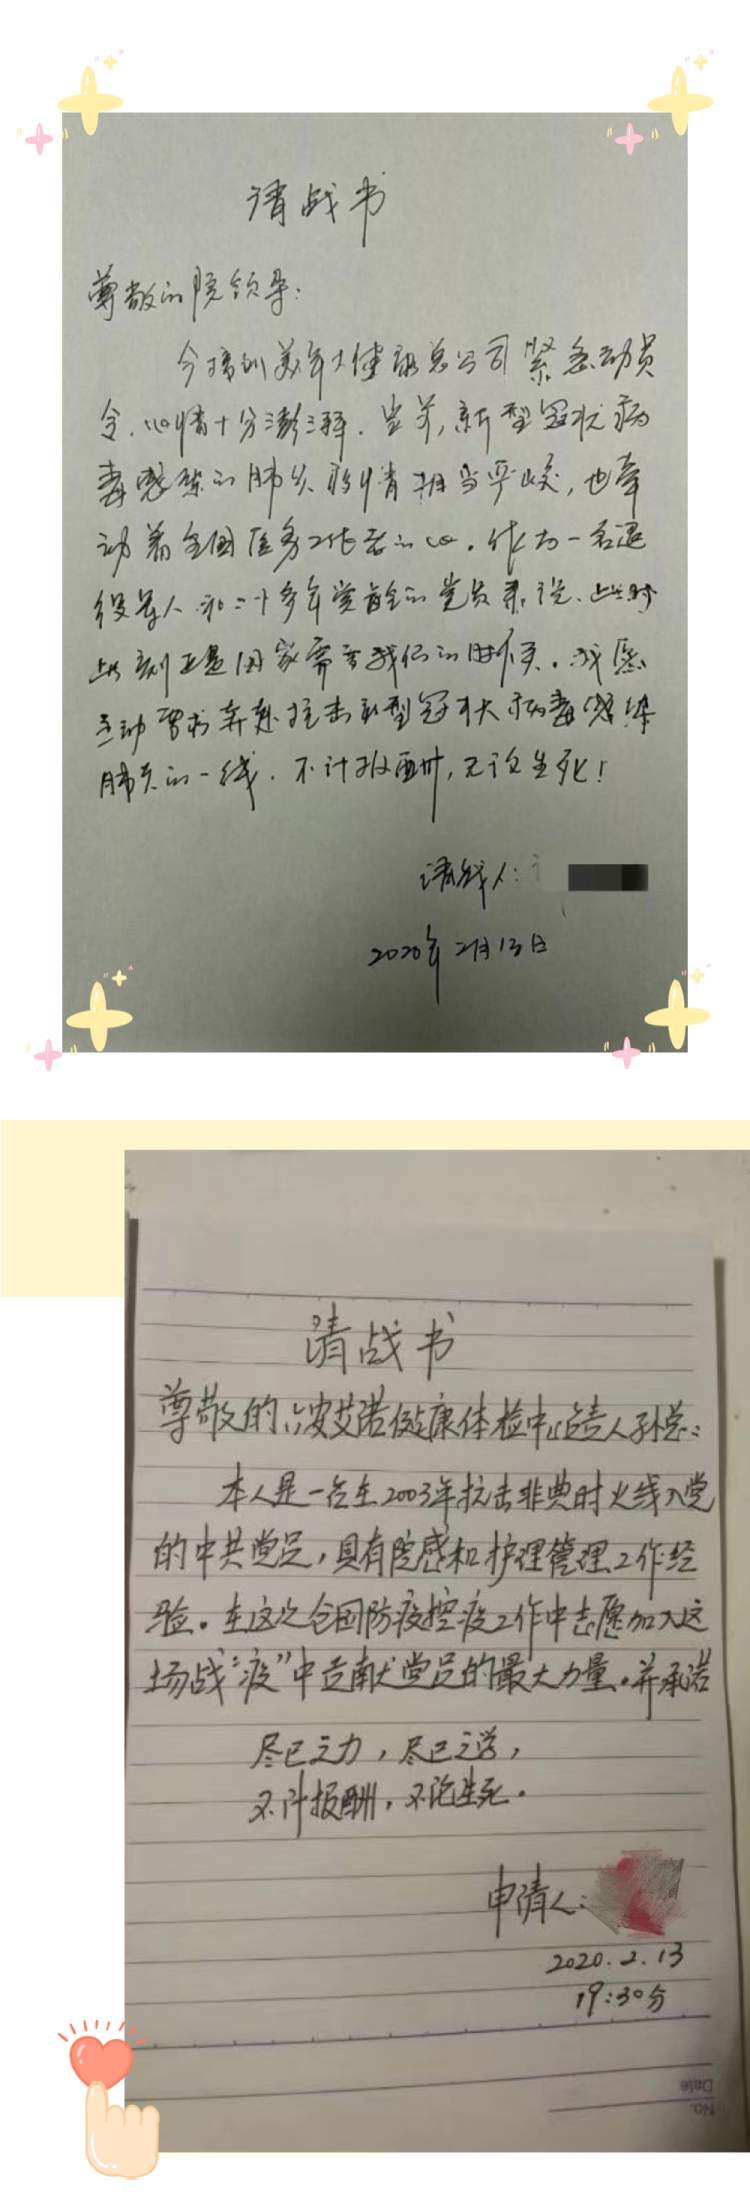 请战书
尊敬的院领导：
今接到美年大健康总公司紧急动员
令，心情十分澎湃。当前，新型冠状病
毒感染的肺炎疫情相当严峻，也牵
动着全国医务工作者的心。作为一名退
役军人和二十多年党龄的党员来说，此时
此刻正是国家需要我们的时候。我愿
主动要求奔赴抗击新型冠状病毒感染
肺炎的一线，不计报酬，无论生死！
请战人：
2020年2月13日
请战书
尊敬的六安艾诺健康体检中心负责人孙总：
本人是一名在2003年抗击非典时火线入党
的中共党员，具有院感和护理管理工作经
验。在这次全国防疫控疫工作中志愿加入这
场战“疫”中贡献党员的最大力量。并承诺
尽己之力，尽己之学，
不计报酬，不论生死。
申请人：
2020.2.13
19:30分
Date
No.